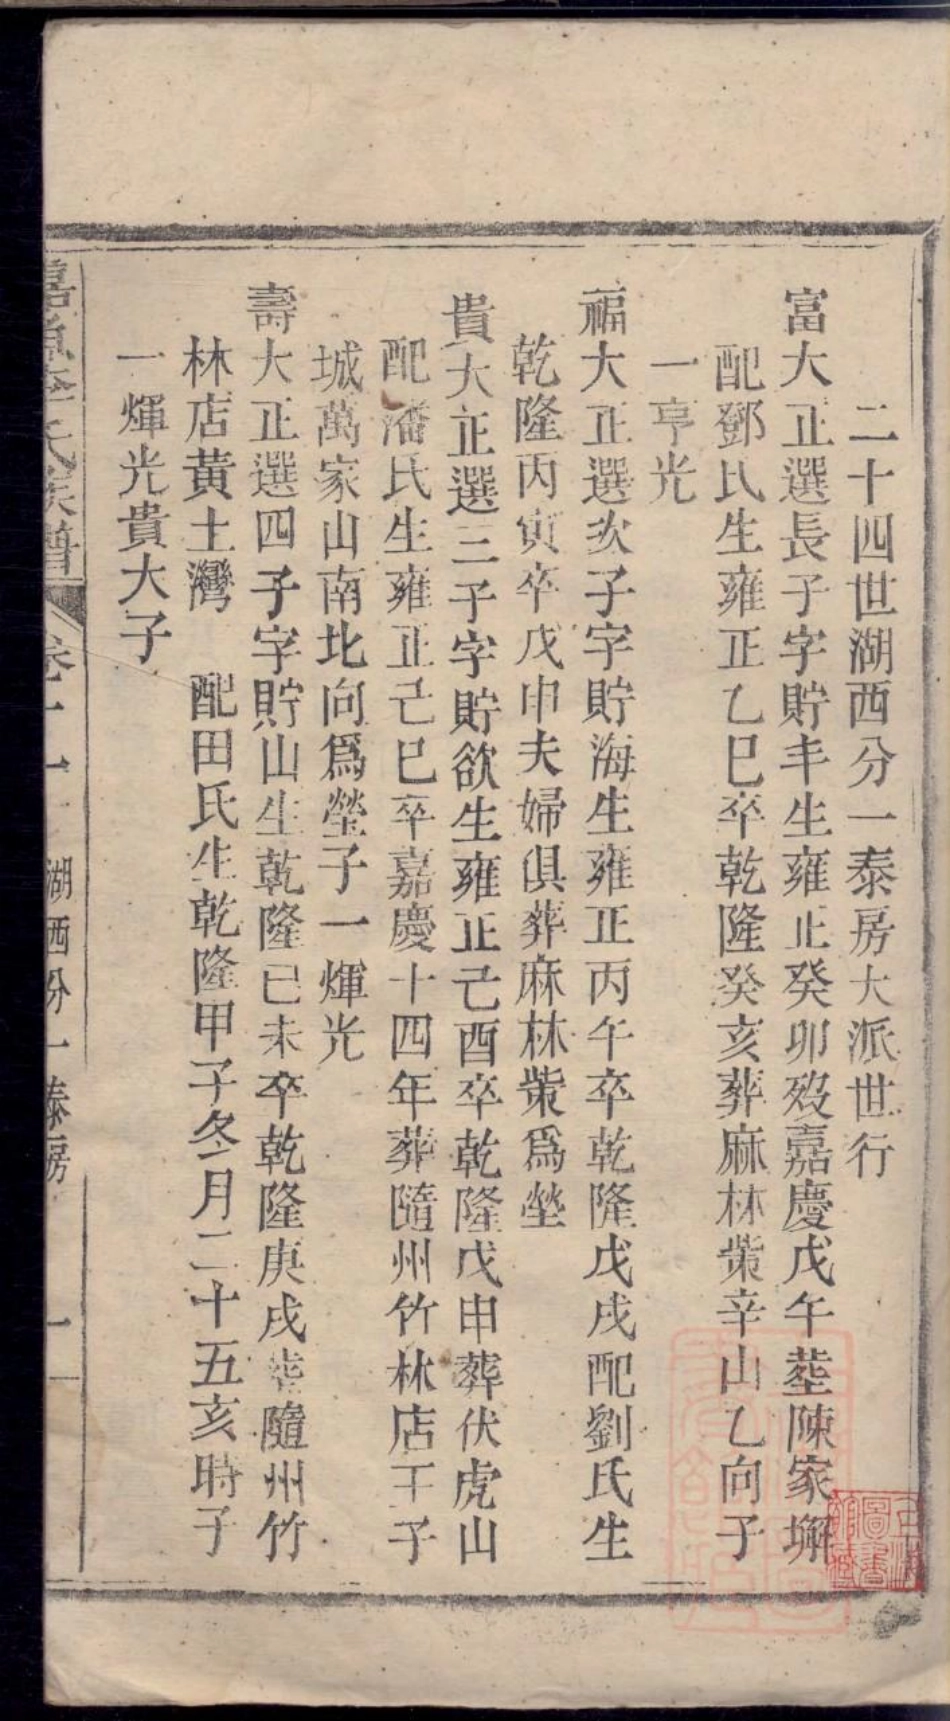 二十四世湖西分一泰房大派世行
富大正選長子字貯丰生雍正癸卯歿嘉慶戊午塟陳家塀
配鄧氏生雍正乙巳卒乾隆癸亥葬麻林柴辛山乙向子
一亨光
福大正選次子字貯海生雍正丙午卒乾隆戊戌配劉氏生
乾隆丙寅卒戊申夫婦俱葬麻林柴爲塋
貴大正選三子字貯欲生雍正己酉卒乾隆戊申葬伏虎山
配潘氏生雍正己巳卒嘉慶十四年葬隨州竹林店王子
城萬家山南北向爲塋子一輝光
壽大正選四子字貯山生乾隆已未卒乾隆庚戌塟隨州竹
林店黃土灣 配田氏生乾隆甲子冬月二十五亥時子
一輝光貴大子
嘉魚李氏族譜 卷十一 湖西分一泰房 一